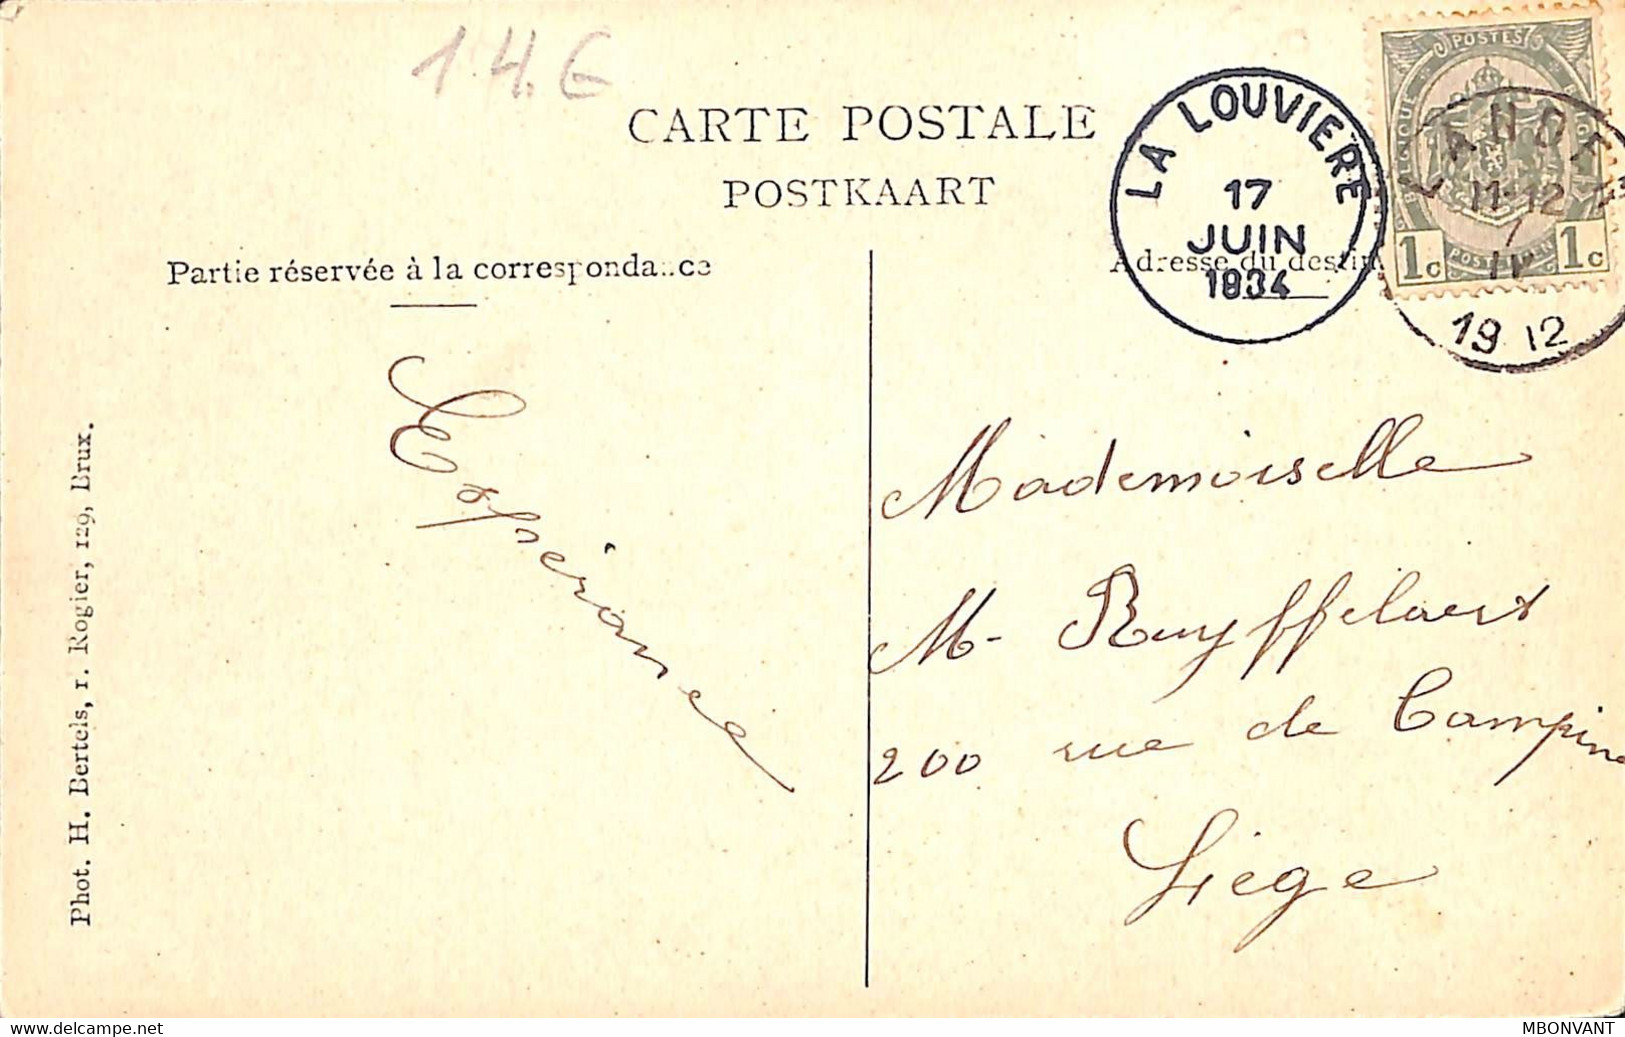 14.G
CARTE POSTALE
POSTKAART
Partie réservée à la correspondance
Adresse du destin
LA LOUVIERE
17
JUIN
1934
POSTES
BELGIQUE
BELGIË
1c
1c
POSTERIJEN
LANDEN
11-12
7
IV
1912
Espérance
Mademoiselle
M- Ruyffelaert
200 rue de Campine
Liège
Phot. H. Bertels, r. Rogier, 129, Brux.
delcampe.net
MBONVANT